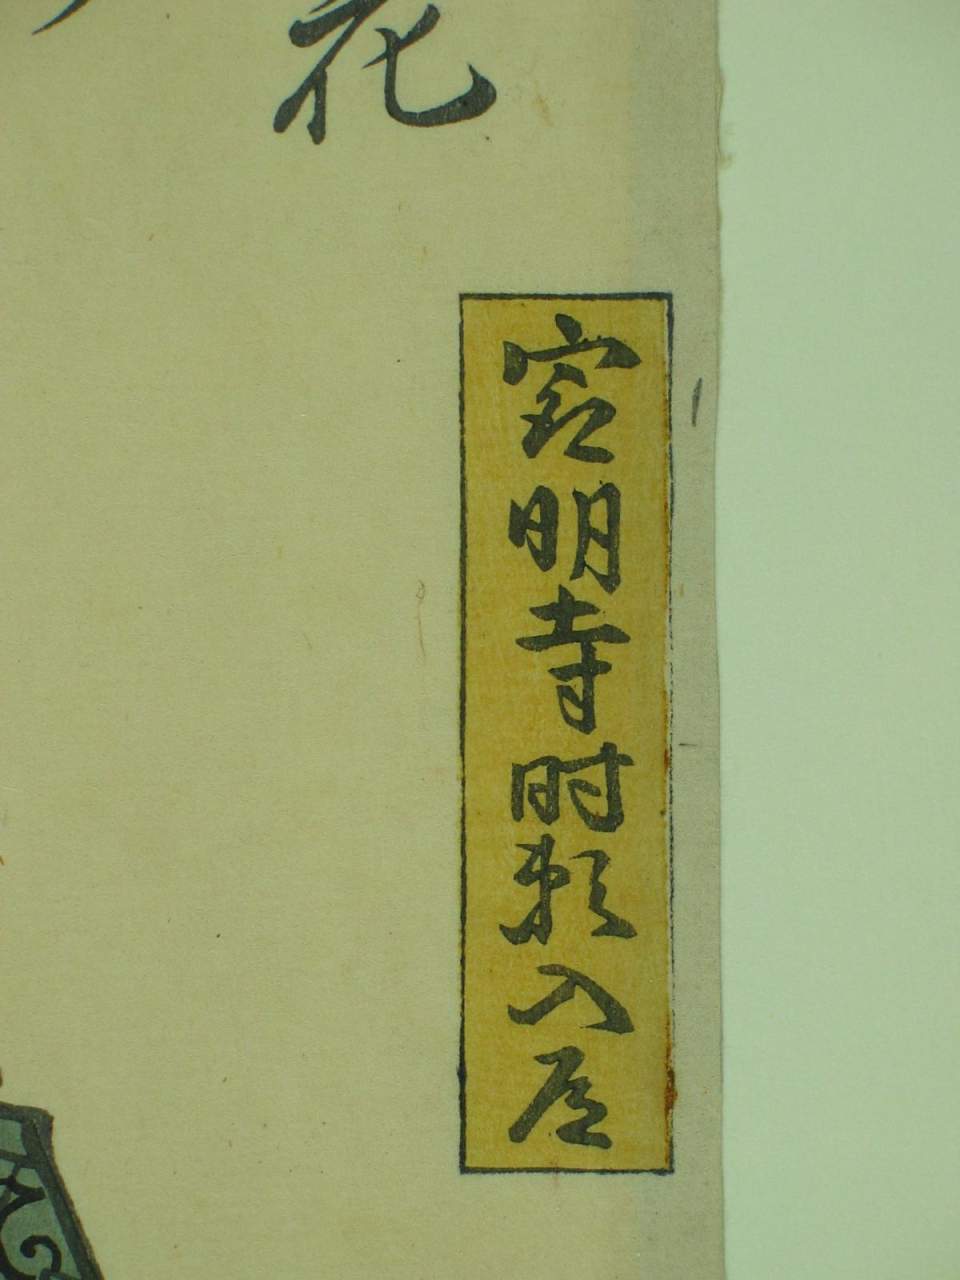 最明寺時頼入道
花